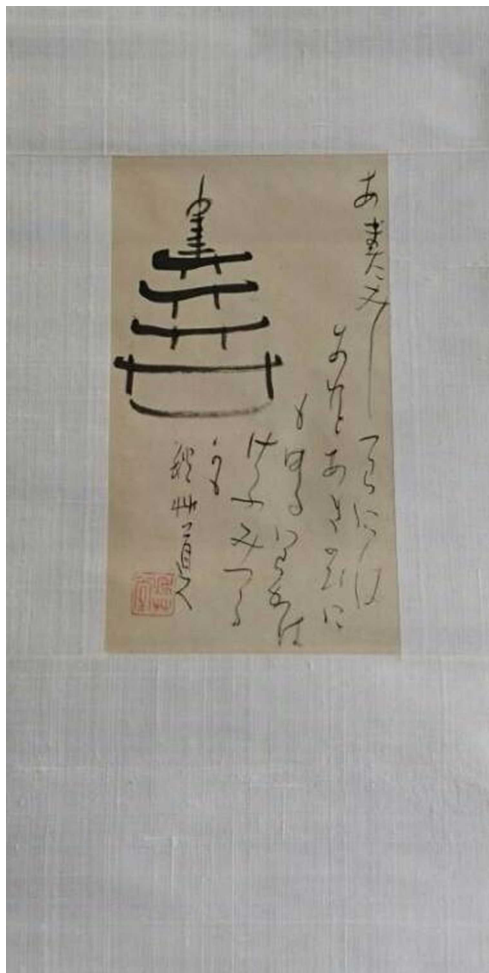 あまたみしてらには
あれとあきのひに
もゆるいらかは
けふみつる
かも
秋艸道人